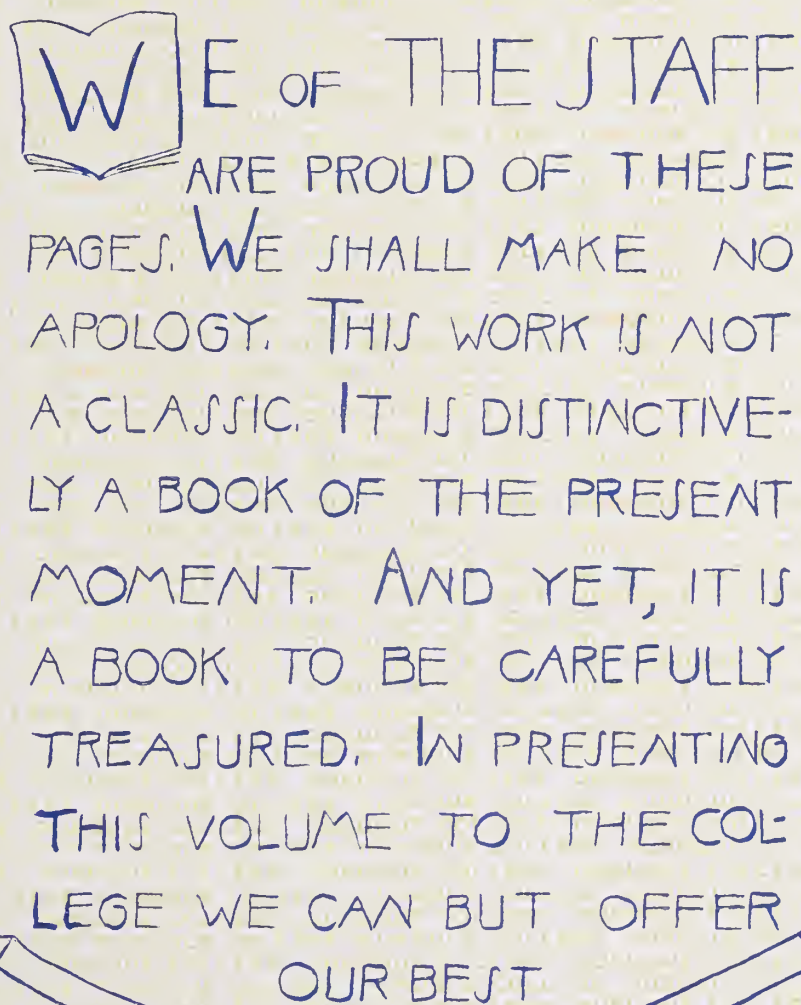 WE OF THE STAFF
ARE PROUD OF THESE
PAGES. WE SHALL MAKE NO
APOLOGY. THIS WORK IS NOT
A CLASSIC. IT IS DISTINCTIVE-
LY A BOOK OF THE PRESENT
MOMENT. AND YET, IT IS
A BOOK TO BE CAREFULLY
TREASURED. IN PRESENTING
THIS VOLUME TO THE COL-
LEGE WE CAN BUT OFFER
OUR BEST